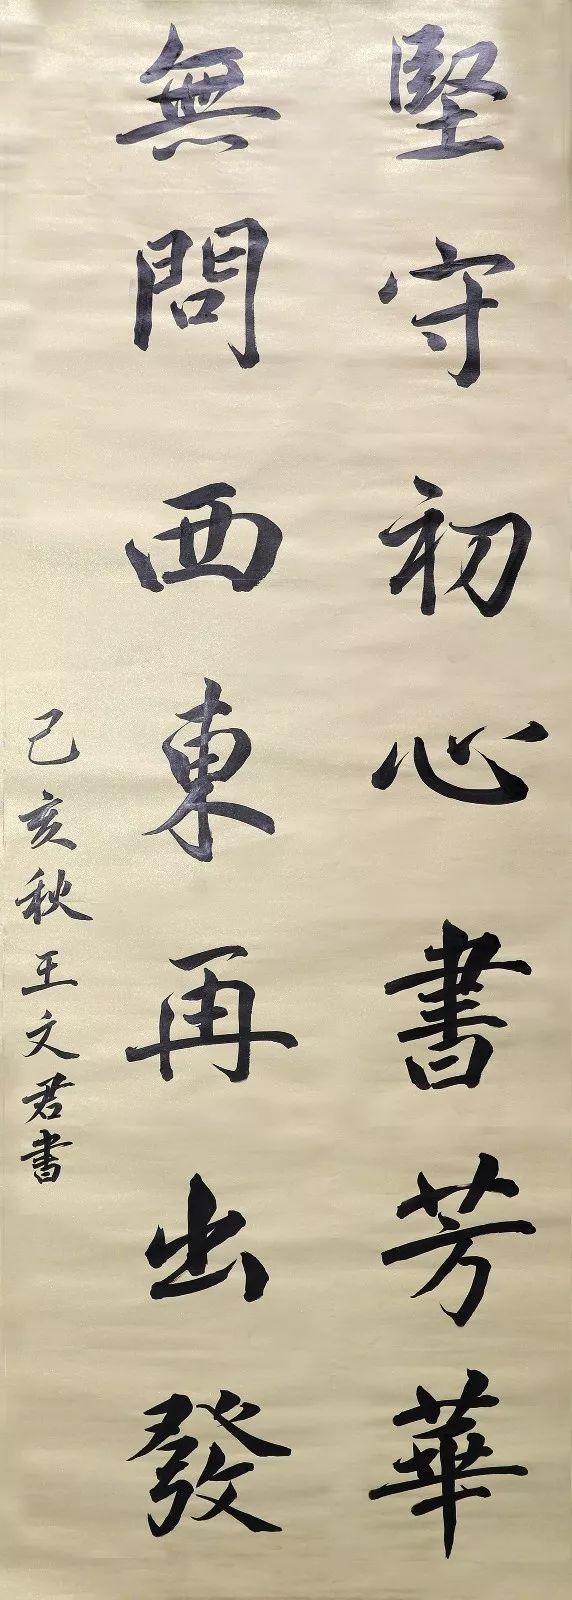 堅守初心書芳華
無問西東再出發
己亥秋王文君書